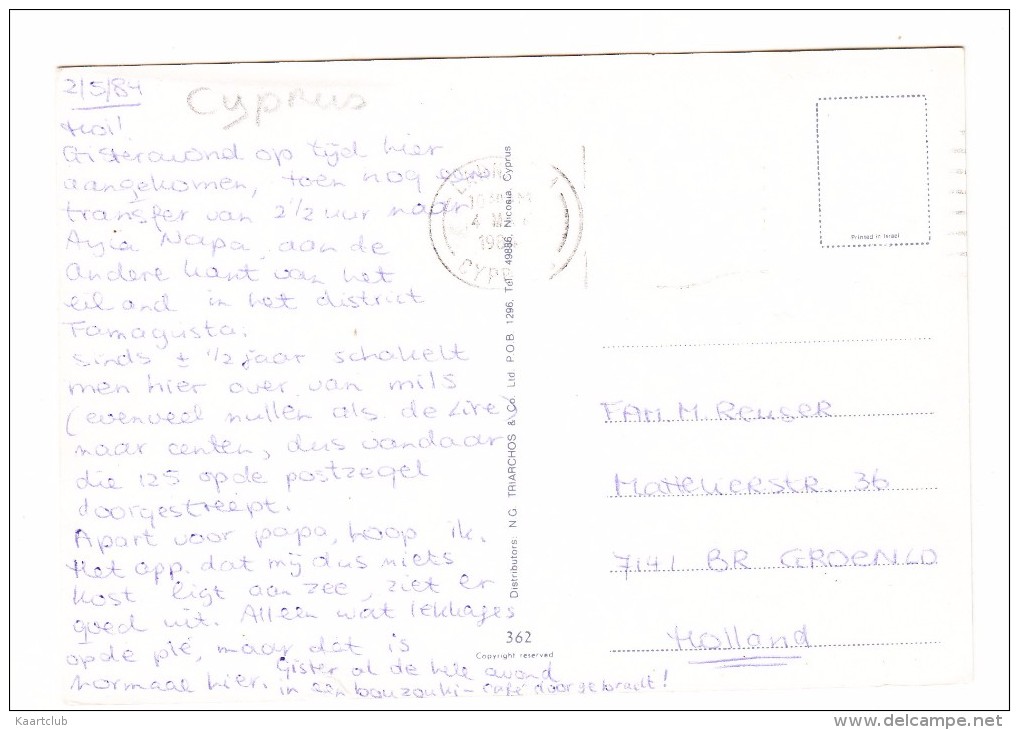 2/5/84
Cyprus
Hoi!
Gisteravond op tijd hier
aangekomen, toen nog een
transfer van 2 1/2 uur naar
Ayia Napa, aan de
andere kant van het
eiland in het district
Famagusta.
Sinds ± 1/2 jaar schakelt
men hier over van mils
(evenveel nullen als de Lire)
naar centen, dus vandaar
die 125 op de postzegel
doorgestreept.
Apart voor papa, hoop ik.
Het app. dat mij dus niets
kost ligt aan zee, ziet er
goed uit. Alleen wat lekkages
op de plé, maar dat is
normaal hier. Gister al de hele avond
in een bouzouki-café doorgebracht!
4 M
198
CYPR
Distributors: N.G. TRIARCHOS & Co. Ltd P.O.B. 1296, Tel. 49886, Nicosia, Cyprus
362
Copyright reserved
Printed in Israel
FAM. M. Reuser
Mattelierstr. 36
7141 BR GROENLO
Holland
Kaartclub
www.delcampe.net